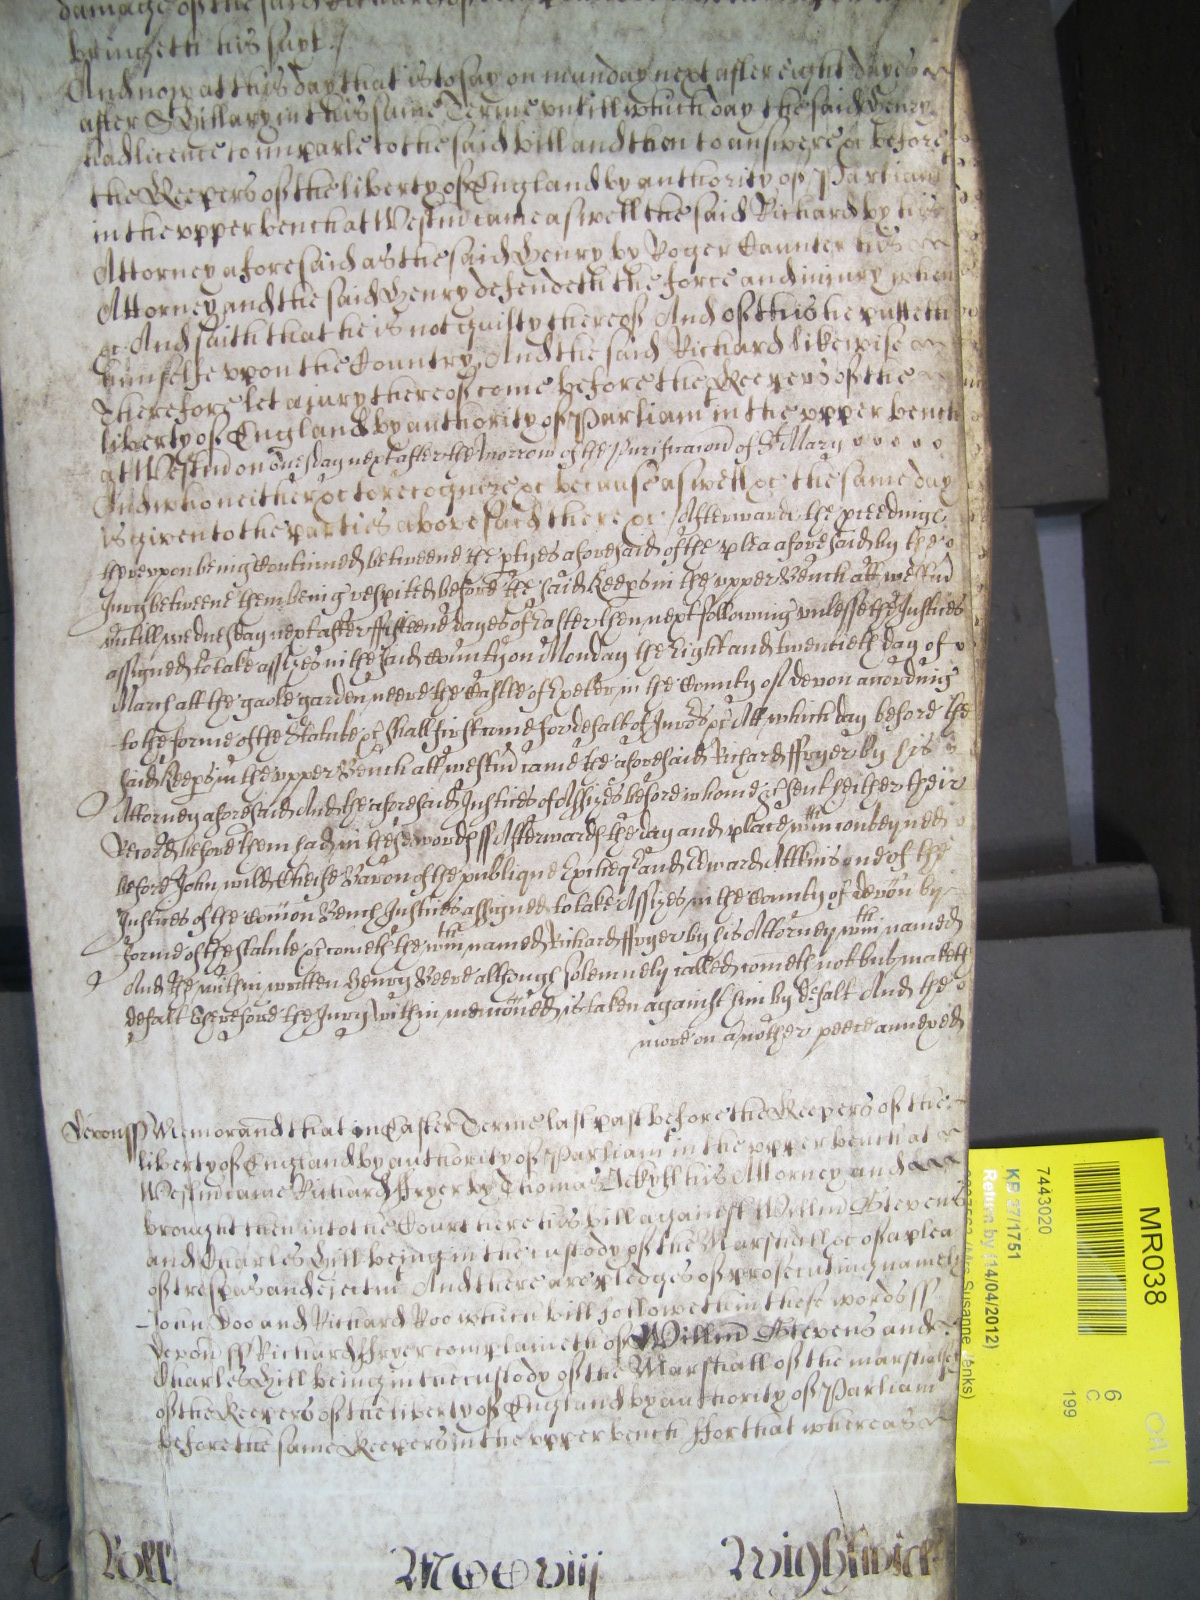 damage of the said Richard
bringeth his sute /
And now at this day that is to say on munday next after eight dayes
after St Hillary in this same Terme untill which day the said Henry
had licence to imparle to the said bill and then to answere &c before
the Keepers of the liberty of England by authority of Parliamt
in the upper bench at Westm came aswell the said Richard by his
Attorney aforesaid as the said Henry by Roger Caunter his
Attorney and the said Henry defendeth the force and iniury when
&c And saith that he is not guilty thereof And of this he putteth
himselfe upon the Country, And the said Richard likewise
Therefore let a iury thereof come before the Keepers of the
liberty of England by authority of Parliamt in the upper bench
at Westm on Tuesday next after the Morrow of the Purificacon of St Mary
And who neither &c to recognize &c because aswell &c the same day
is given to the parties abovesaid there &c / Afterwards the proceedings
thereupon being Continued betweene the ptyes aforesaid of the plea aforesaid by the
Jury betweene them being respited before the said Keeps in the upper Bench att Westm
untill wednesday next after ffifteene dayes of Easter then next following unlesse the Justices
assigned to take assizes in the said County on Monday the Eight and twentieth day of
March att the gaole garden neere the Castle of Exeter in the County of Devon according
to the forme of the Statute &c shall first come for defalt of Jurors &c Att which day before the
said Keeps in the upper Bench att westm came the aforesaid Richard ffryer by his
Attorney aforesaid And the aforesaid Justices of Assizes before whome &c sent heither their
Record before them had in these words ss Afterwards the day and place wthin conteyned
before John wilde Cheife Baron of the publique Excheqr and Edward Attkins one of the
Justices of the Comon Bench Justices assigned to take Assizes in the County of Devon by
forme of the statute &c cometh the wthin named Richard ffryer by his Attorney wthin named
And the within written Henry Beere although solemnely called cometh not but maketh
defalt Therefore the Jury within menconed is taken against him by defalt And the
more on another peece annexed
Devon ss Memorand that in Easter Terme last past before the Keepers of the
liberty of England by authority of Parliamt in the upper bench at
Westm came Richard ffryer by Thomas Jekyll his Attorney and
brought then into the Court here his bill against Willm Stevens
and Charles Hill being in the custody of the Marshall &c of a plea
of trespas and eiectmt And there are pledges of prosecuting namely
John Doo and Richard Roo which bill followeth in these words ss
Devon ss Richard ffryer complaineth of Willm Stevens and
Charles Hill being in the custody of the Marshall of the marshalsey
of the Keepers of the liberty of England by authority of Parliamt
before the same Keepers in the upper bench ffor that whereas
Roll MCCviij Wightwick
MR038
6
C
199
OA1
7443020
KB 27/1751
Return by (14/04/2012)
(Mrs Susanne Jenks)